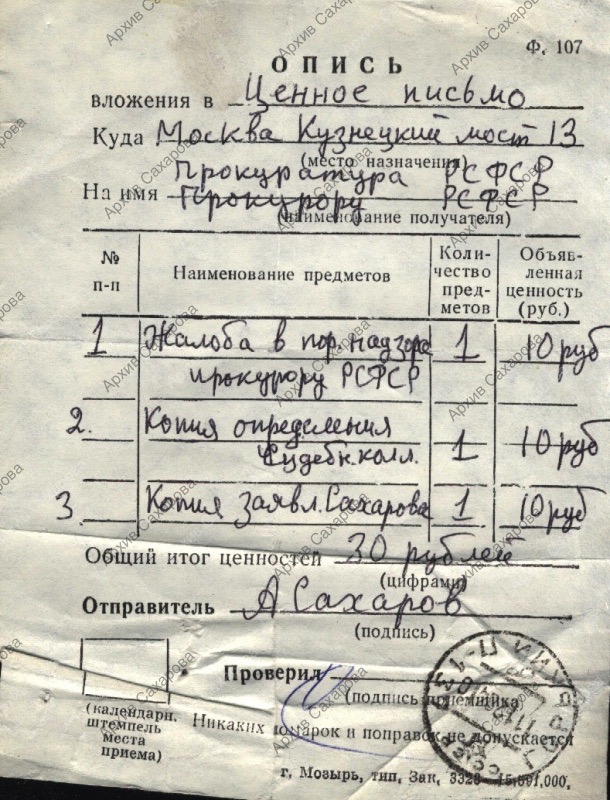 Ф. 107
ОПИСЬ
вложения в Ценное письмо
Куда Москва Кузнецкий мост 13
(место назначения)
Прокуратура РСФСР
На имя Прокурору РСФСР
(наименование получателя)
№ п-п Наименование предметов Коли- чество пред- метов Объяв- ленная ценность (руб.)
1 Жалоба в пор. надзора 1 10 руб
прокурору РСФСР
2. Копия определения
Судебн. колл. 1 10 руб
3 Копия заявл. Сахарова 1 10 руб
Общий итог ценностей 30 рублей
(цифрами)
Отправитель А Сахаров
(подпись)
Проверил
(подпись приемщика)
(календарн. штемпель места приема)
Никаких помарок и поправок не допускается
г. Мозырь, тип. Зак. 3328—15.591.000.
Архив Сахарова